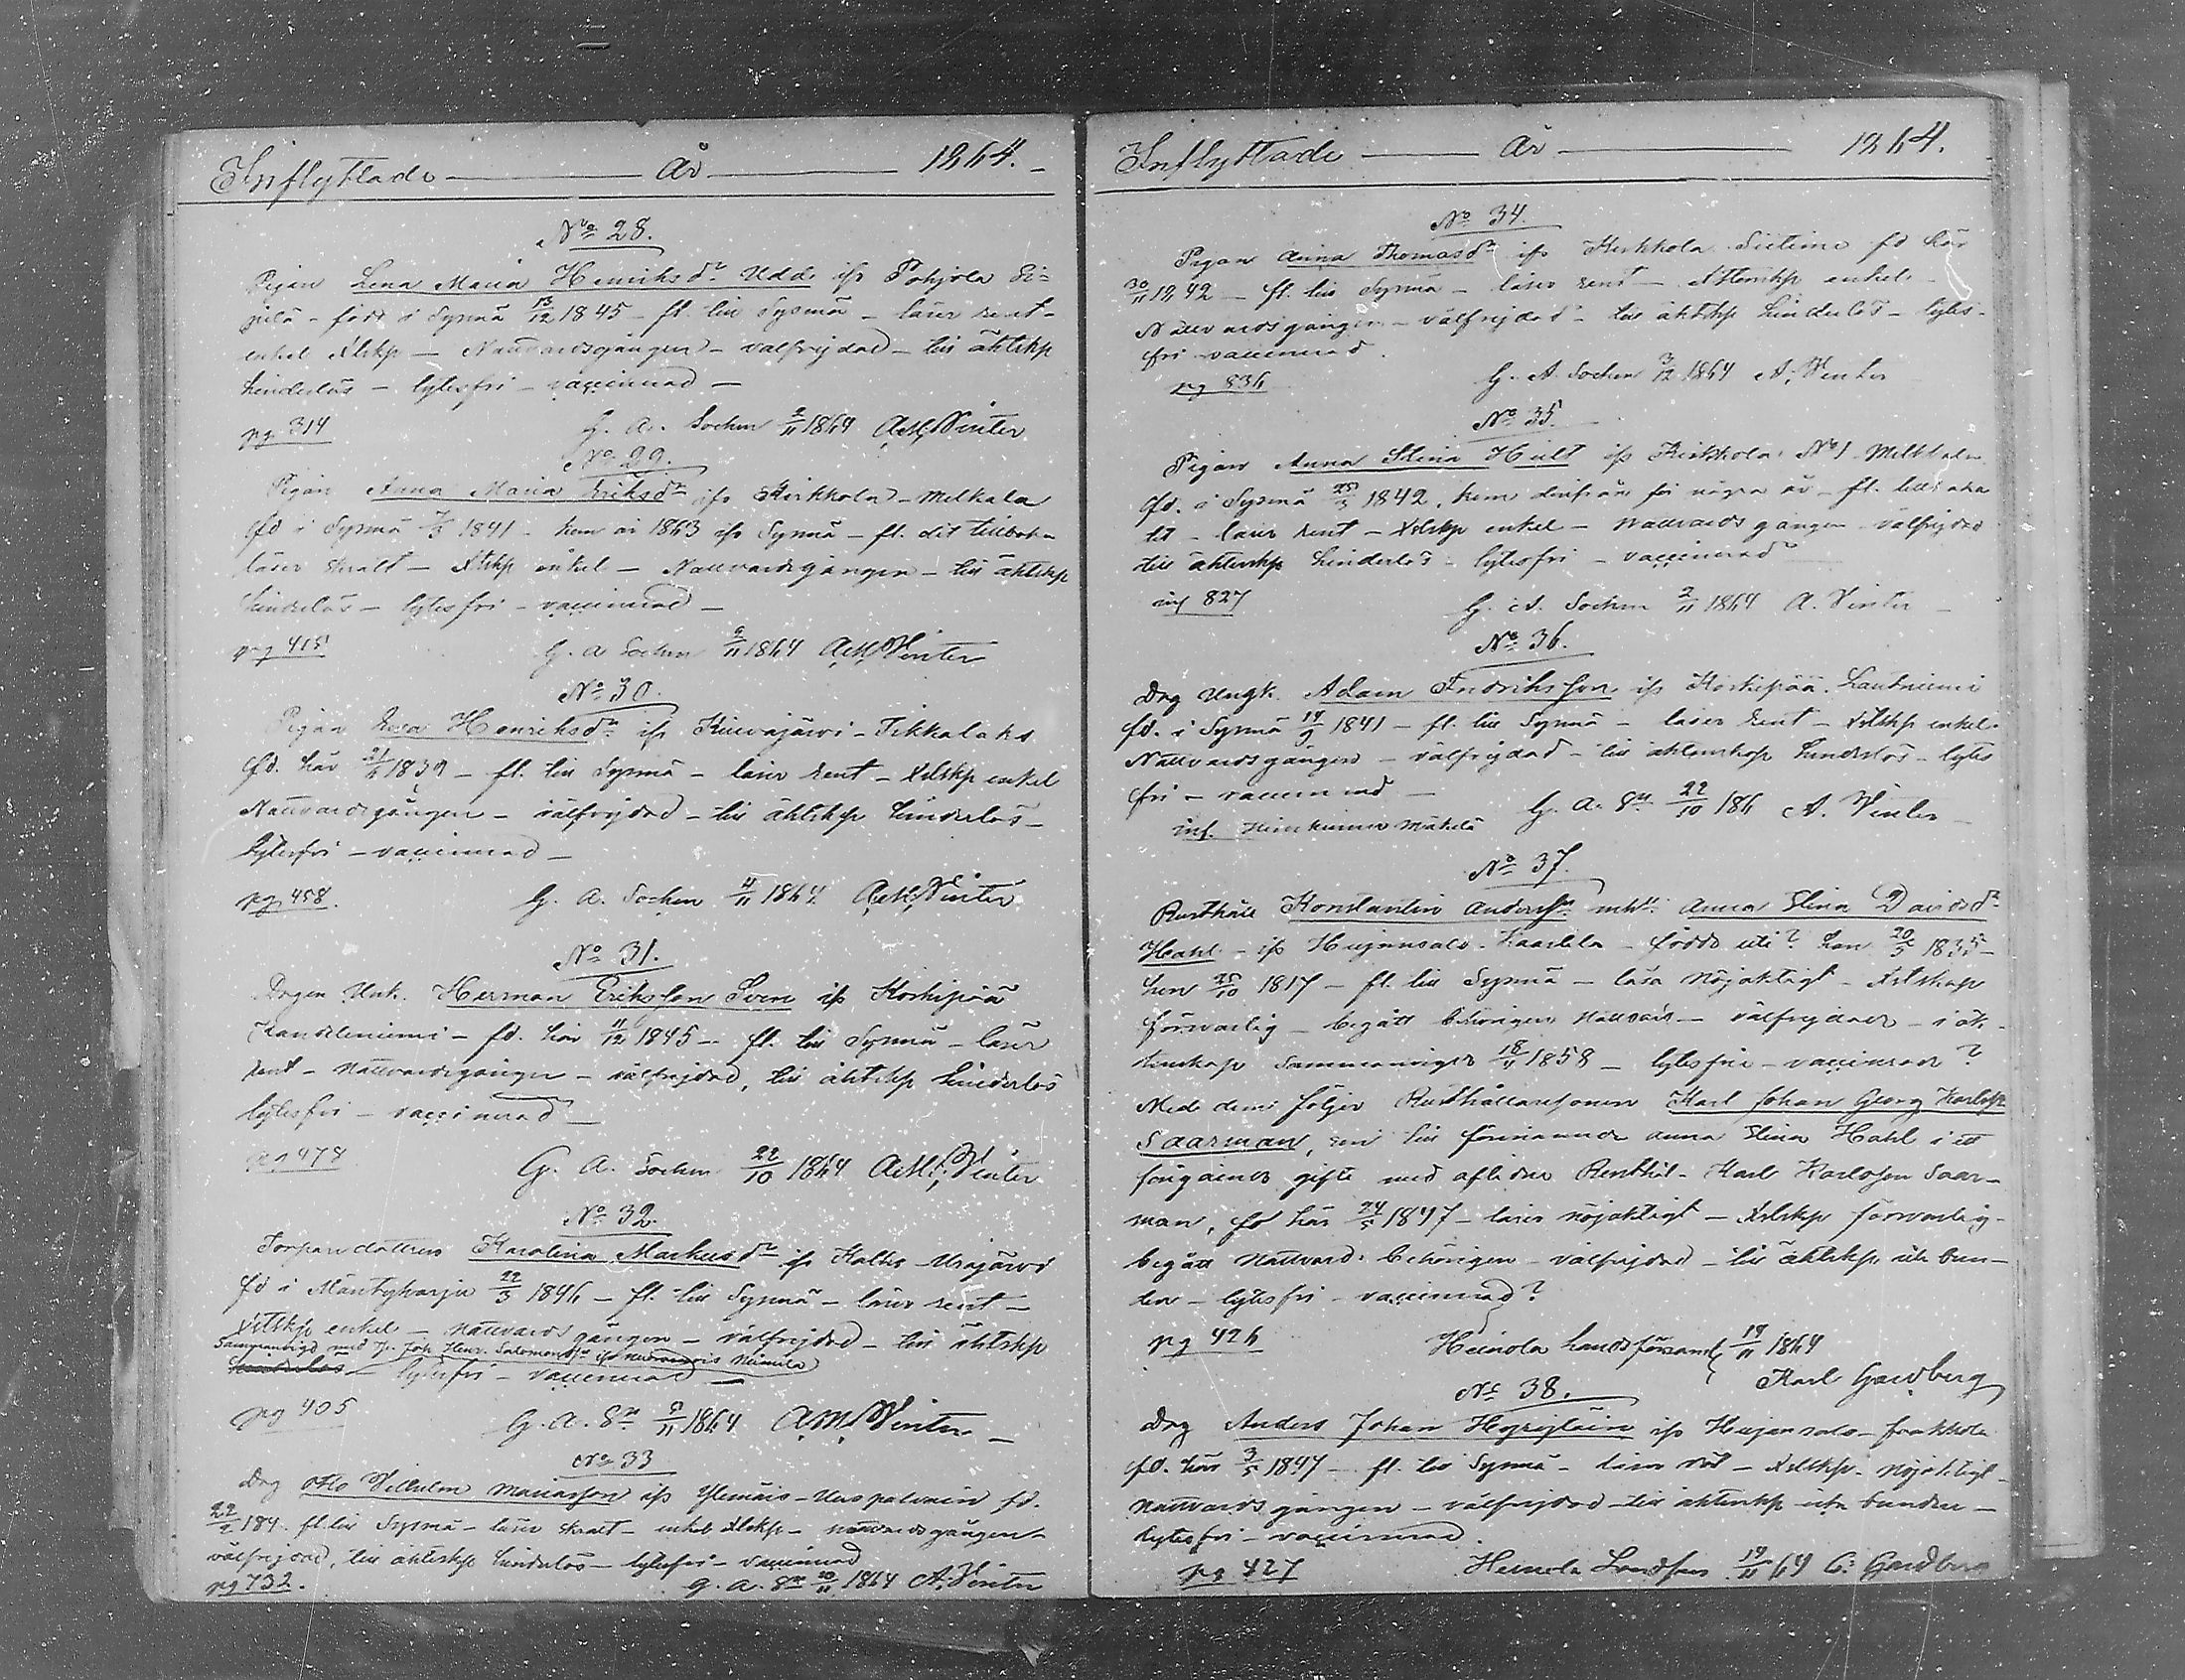 Inflyttade — År — 1864. —
No 28.
Pigan Lena Maria Henriksdr Uddi ifr Pohjola Si-
pilä - född i Sysmä 13/12 1845 - fl. till Sysmä - läser rent -
enkel Xtskp - Nattvardsgången - välfrejdad - till äktskp
hinderlös - lytesfri - vaccinerad -
pg 314 G. A. Sochen 2/11 1864 A.M. Winter
No 29.
Pigan Anna Maria Eriksdr ifr Kirkkola - Melkala
fd i Sysmä 7/3 1841 - kom år 1863 ifr Sysmä - fl. dit tillbaka
läser svält - Xtskp enkel - Nattvardsgången - till äktskp
hinderlös - lytesfri - vaccinerad -
pg 415 G. A. Sochen 9/11 1864 A.M. Winter
No 30.
Pigan Eva Henriksdr ifr - Tikkalaks
fd. här 21/6 1839 - fl. till Sysmä - läser rent - Xtskp enkel
Nattvardsgången - välfrejdad - till äktskp hinderlös -
lytesfri - vaccinerad -
pg 458. G. A. Sochen 4/11 1864 A.M. Winter
No 31.
Drgen Unk. Herman Eriksson Sven ifr Koskipää
- fd. här 11/12 1845 - fl. till Sysmä - läser
rent - nattvardsgången - välfrejdad, till äktskp hinderlös
lytesfri - vaccinerad -
pg 478 G. A. Sochen 22/10 1864 A.M. Winter
No 32.
Torpardottren Karolina Markusdr ifr Kalho Urajärvi
fd i Mäntyharju 22/3 1846 - fl. till Sysmä - läser rent -
Xtskp enkel - nattvardsgången - välfrejdad - till äktskp
Sammanvigd med Joh. Henr. Salomonsson ifr Niemilä
hinderlös - lytesfri - vaccinerad -
pg 405 G. A. Sn 9/11 1864 A.M. Winter -
No 33
Drg Otto Vilhelm Mariasson ifr fd.
22/2 184 fl. till Sysmä - läser - enkel Xtskp - nattvardsgången -
välfrejdad, till äktskp hinderlös - lytesfri - vaccinerad
pg 732. G. A. Sn 20/11 1864 A. Winter
Inflyttade — År — 1864.
No 34.
Pigan Anna Thomasdr ifr Kirkkola fd här
30/11 1842 - fl. till Sysmä - läser rent - Xtenskp enkel -
Nattvardsgången - välfrejdad - till äktskp hinderlös - lytes-
fri - vaccinerad.
pg 836 G. A. Sochen 3/12 1864 A. Winter
No 35.
Pigan Anna Stina Hult ifr Kirkkola No 1 Melkkala
fd. i Sysmä 25/3 1842, kom derifrån för några år - fl. tillbaka
dit - läser rent - Xtskp enkel - nattvardsgången - välfrejdad
till äktenskp hinderlös - lytesfri - vaccinerad
inf 827 G. A. Sochen 2/11 1864 A. Winter -
No 36.
Drg Ungk. Adam Fredriksson ifr Koskipää
fd. i Sysmä 19/9 1841 - fl. till Sysmä - läser rent - Xtskp enkel -
Nattvardsgången - välfrejdad - till äktenskap hinderlös - lytes
fri - vaccinerad -
inf. Mäkelä G. A. Sn 22/10 186 A. Winter -
No 37.
Rusthåll Konstantin Andersson mhu Anna Stina Davidsdr
Hahl - ifr Heijansalo Kaarlela - födde uti? han 20/5 1835 -
hon 25/10 1817 - fl. till Sysmä - läsa nöjaktigt - Xtskap
försvarlig - begått behörigen Nattvard - välfrejdade - i äk-
tenskap sammanvigde 18/11 1858 - lytesfria - vaccinerade?
Med dem följer Rusthållaresonen Karl Johan Georg Karlsson
Saarman, som till förenämnda Anna Stina Hahl i ett
föregående gifte med aflidne Rusthål. Karl Karlsson Saar-
man, fd här 24/5 1847 - läser nöjaktigt - Xtskp försvarlig -
begått nattvard behörigen - välfrejdad - till äktskp obun-
den - lytesfri - vaccinerad?
pg 426 Heinola landsförsaml 19/11 1864
Karl Gardberg
No 38.
Drg Anders Johan ifr Heijansalo
fd. här 3/5 1847 - fl. till Sysmä - läser väl - Xtskp. nöjaktigt -
nattvardsgången - välfrejdad - till äktenskp obunden -
lytesfri - vaccinerad.
pg 427 Heinola Landsförs 19/11 64 C. Gardberg